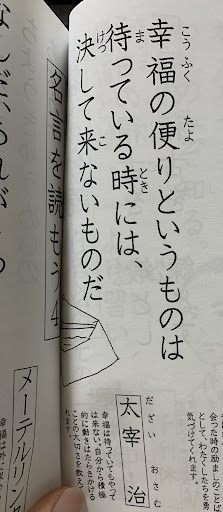 こうふく たよ
幸福の便りというものは
ま とき
待っている時には、
けっ こ
決して来ないものだ
会った時の励ましのことば
として、わたくしたちを勇
気づけてくれます。
だざい おさむ
太宰 治
幸福は待っていてもやって
は来ない。自分から積極
的に動きはたらきかける
ことの大切さを教えてく
れます。
名言を読もう 4
メーテルリン